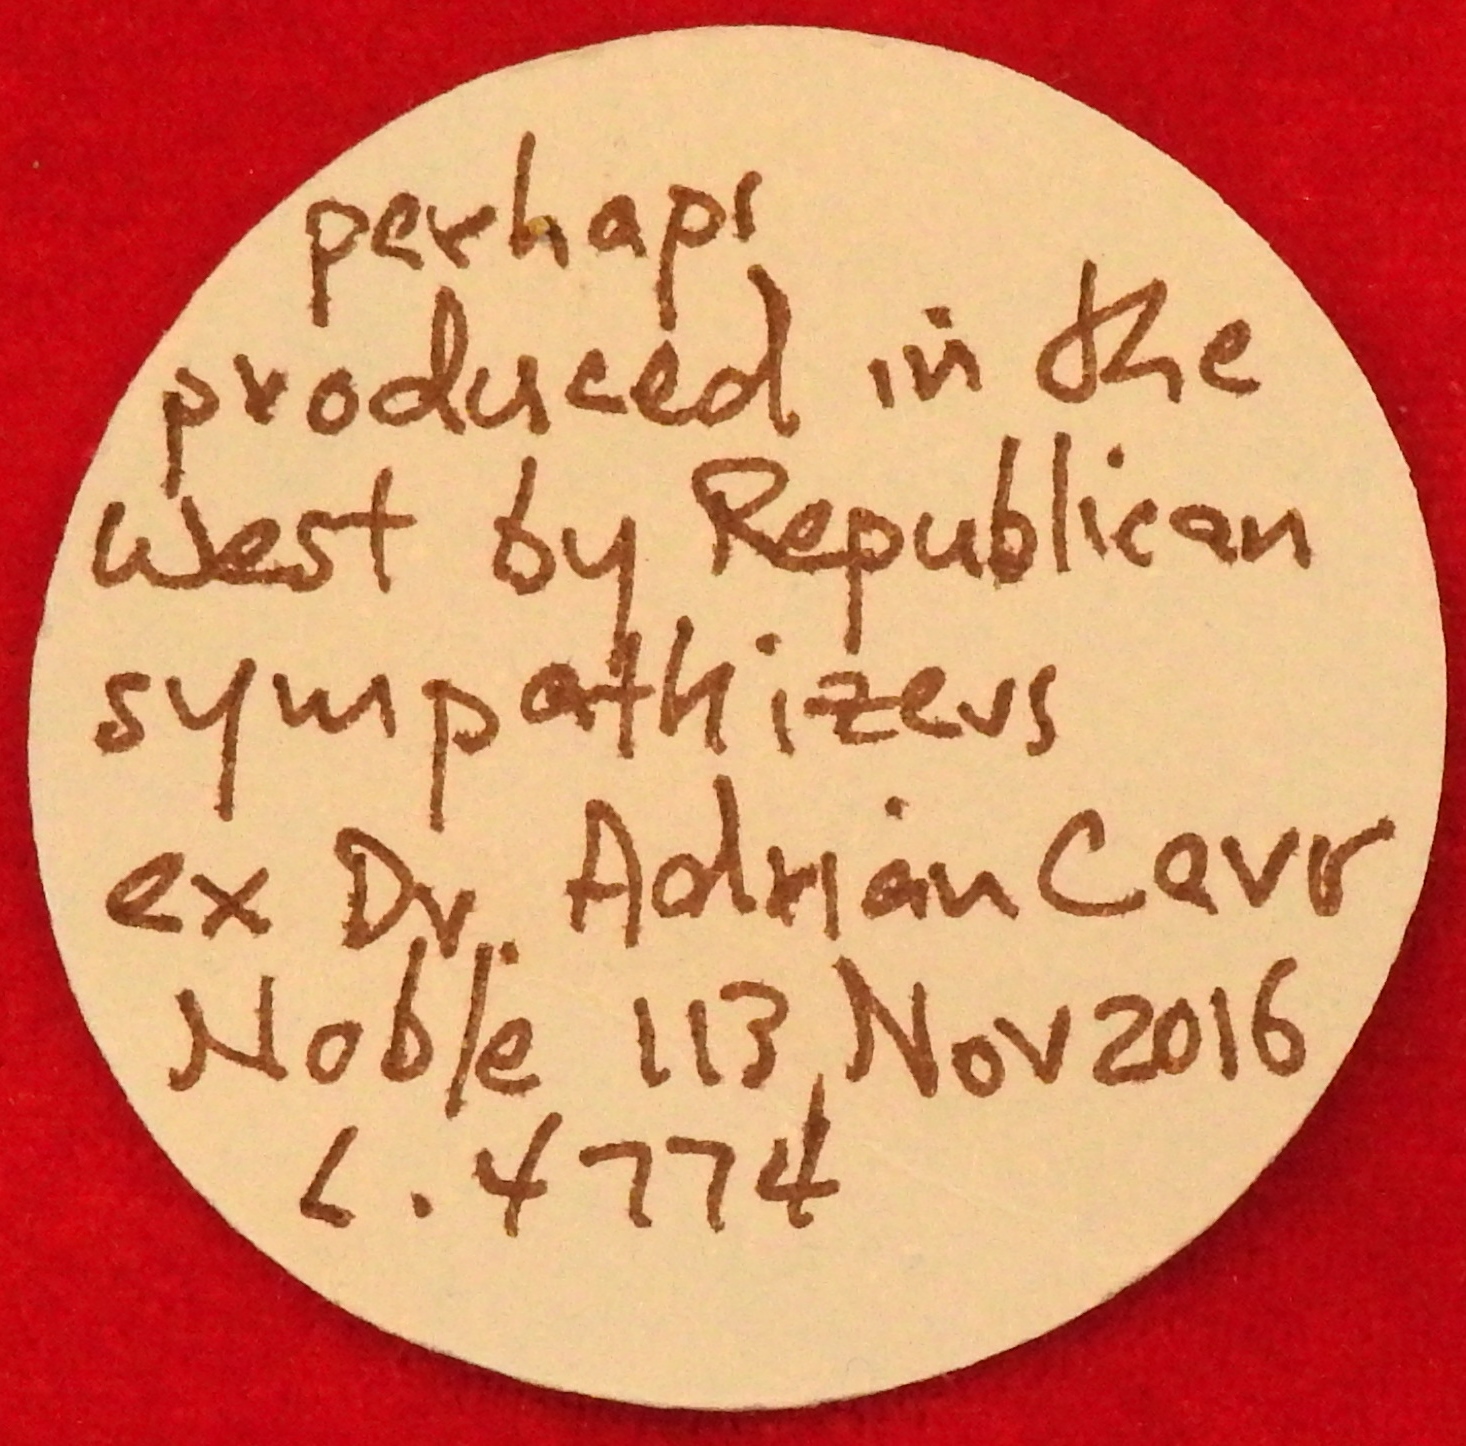 perhaps
produced in the
West by Republican
sympathizers
ex Dr. Adrian Carr
Noble 113, Nov 2016
L. 4774